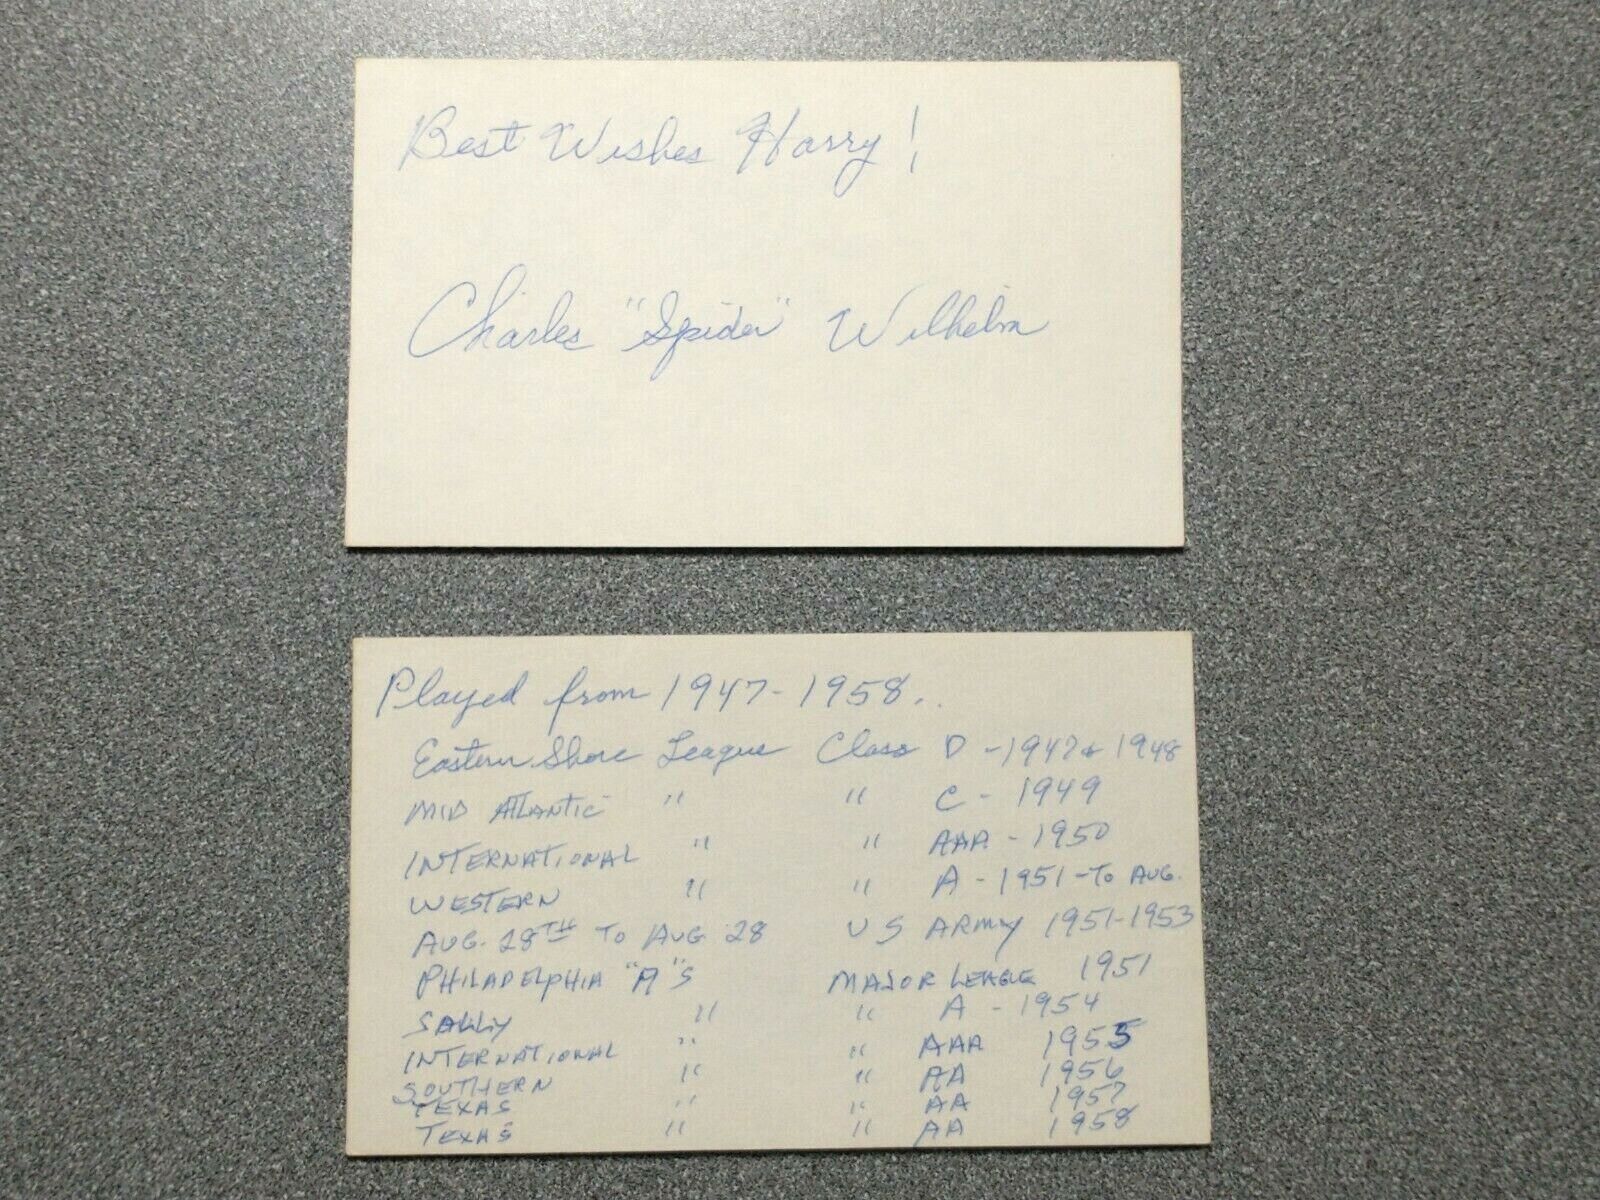 Best Wishes Harry!
Charles "Spider" Wilhelm
Played from 1947-1958..
Eastern Shore League Class D - 1947 & 1948
MID ATLANTIC " " C - 1949
INTERNATIONAL " " AAA - 1950
WESTERN " " A - 1951 - TO AUG.
AUG. 28TH TO AUG 28 US ARMY 1951-1953
PHILADELPHIA "A"S MAJOR LEAGUE 1951
SALLY " " A - 1954
INTERNATIONAL " " AAA 1955
SOUTHERN " " AA 1956
TEXAS " " AA 1957
TEXAS " " AA 1958